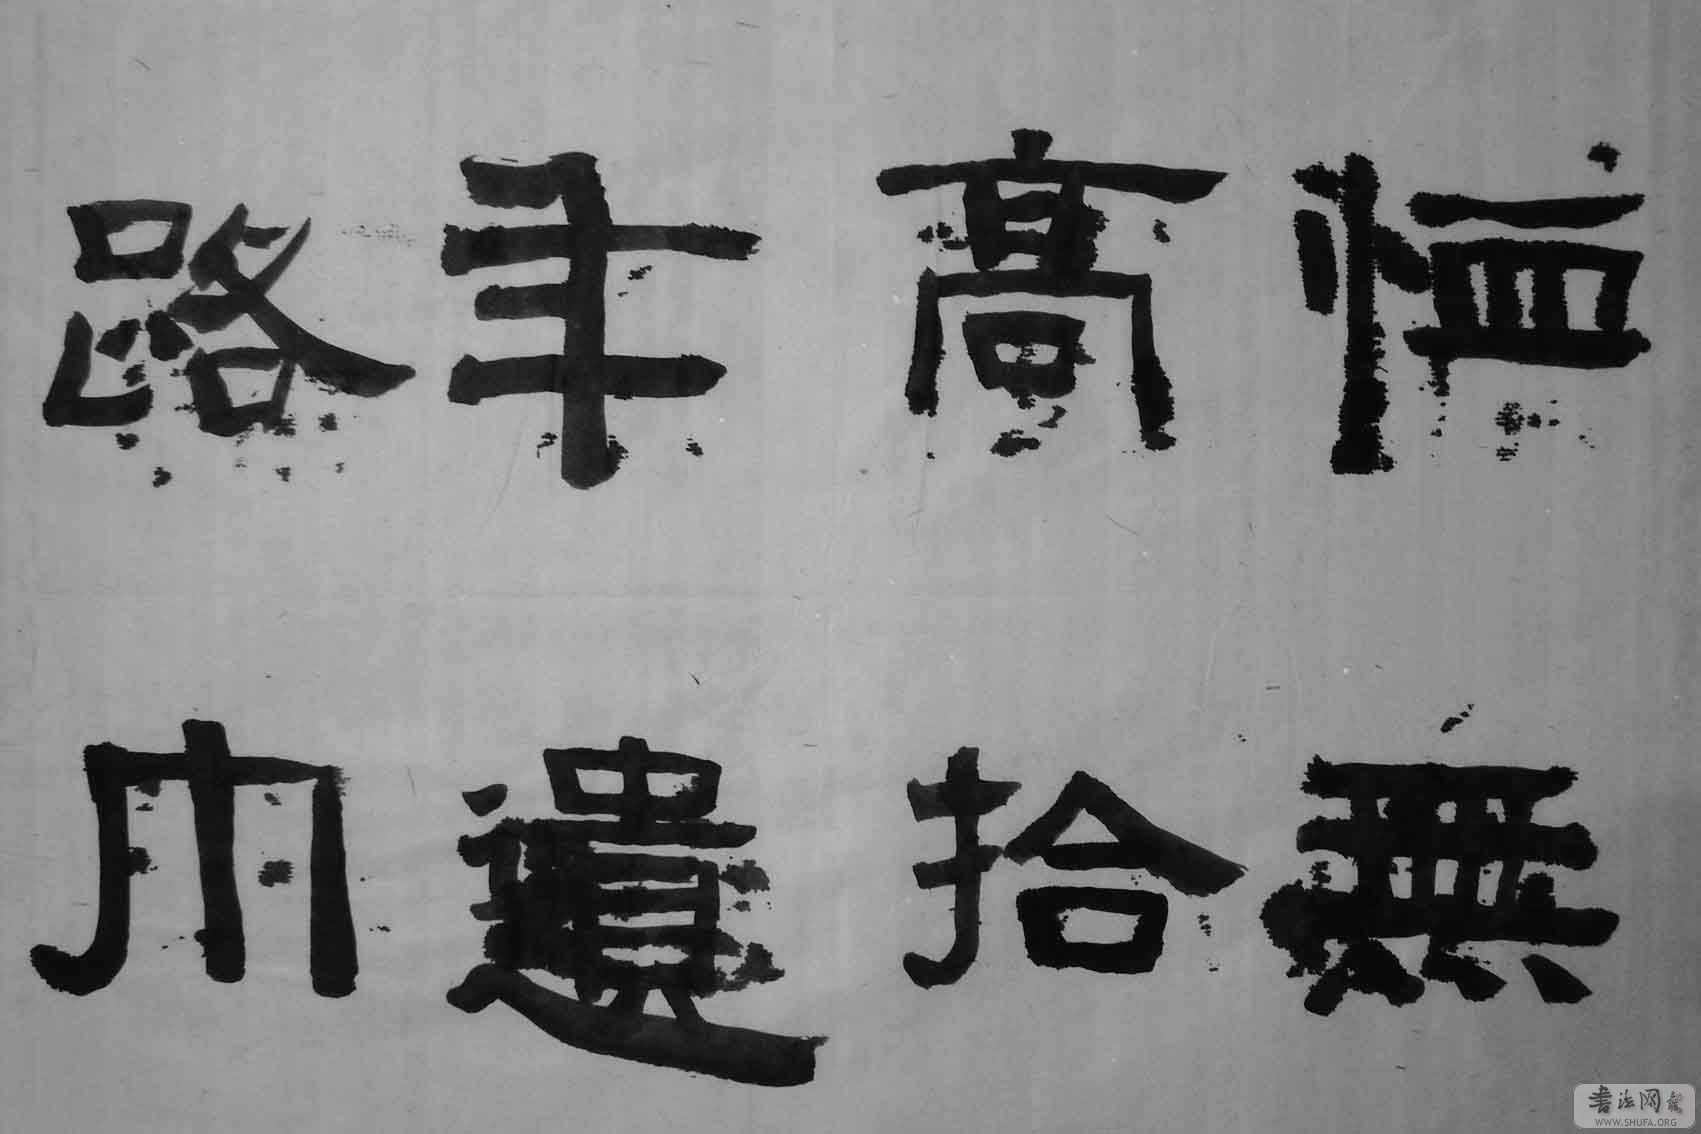 恤高年路
無拾遺巾
書法网
WWW.SHUFA.ORG